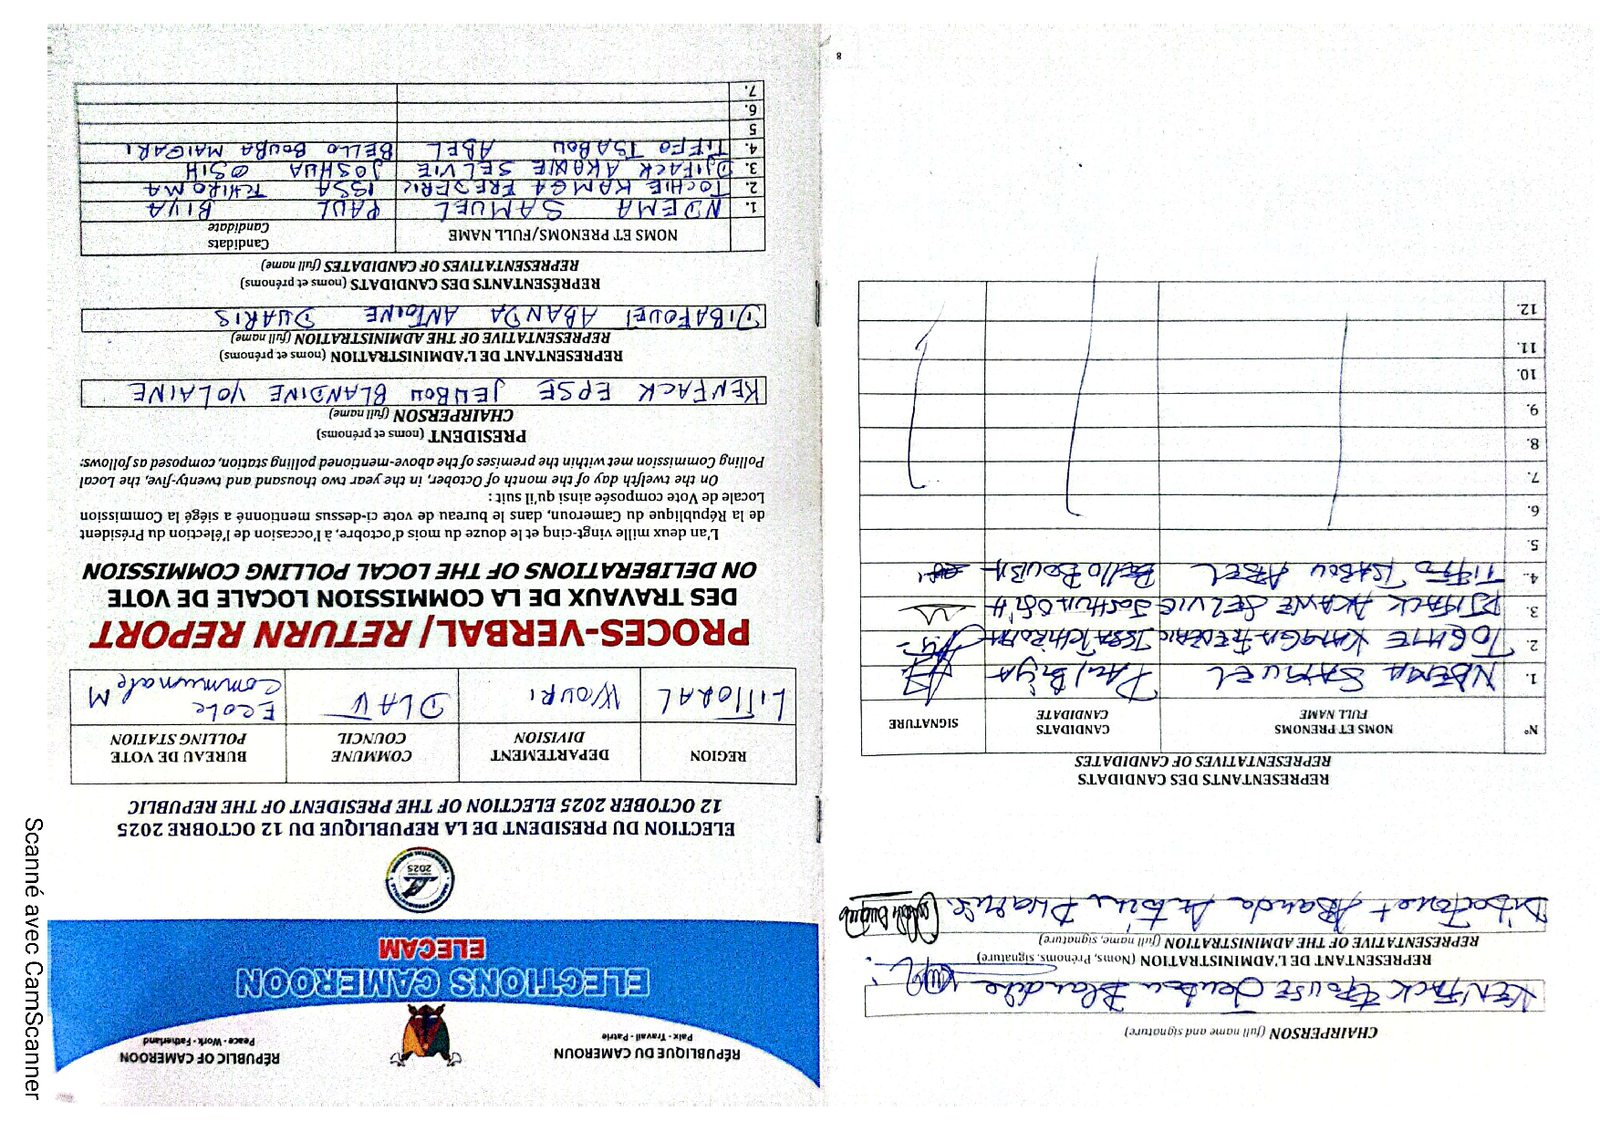 RÉPUBLIQUE DU CAMEROUN
Paix - Travail - Patrie
RÉPUBLIC OF CAMEROON
Peace - Work - Fatherland
ELECTIONS CAMEROON
ELECAM
2025
ELECTION DU PRESIDENT DE LA REPUBLIQUE DU 12 OCTOBRE 2025
12 OCTOBER 2025 ELECTION OF THE PRESIDENT OF THE REPUBLIC
REGION
DEPARTEMENT
DIVISION
COMMUNE
COUNCIL
BUREAU DE VOTE
POLLING STATION
LITTORAL
WOURI
DLA V
Ecole Communale M
PROCES-VERBAL/ RETURN REPORT
DES TRAVAUX DE LA COMMISSION LOCALE DE VOTE
ON DELIBERATIONS OF THE LOCAL POLLING COMMISSION
L'an deux mille vingt-cinq et le douze du mois d'octobre, à l'occasion de l'élection du Président
de la République du Cameroun, dans le bureau de vote ci-dessus mentionné a siégé la Commission
Locale de Vote composée ainsi qu'il suit :
On the twelfth day of the month of October, in the year two thousand and twenty-five, the Local
Polling Commission met within the premises of the above-mentioned polling station, composed as follows:
PRESIDENT (noms et prénoms)
CHAIRPERSON (full name)
KENFACK EPSE JEUBOU BLANDINE YOLAINE
REPRESENTANT DE L'ADMINISTRATION (noms et prénoms)
REPRESENTATIVE OF THE ADMINISTRATION (full name)
DIBAFOUEI ABANDA ANTOINE DUARIS
REPRÉSENTANTS DES CANDIDATS (noms et prénoms)
REPRESENTATIVES OF CANDIDATES (full name)
NOMS ET PRENOMS/FULL NAME
Candidats
Candidate
1. NDEMA SAMUEL PAUL BIYA
2. TOCHIE KAMGA FREDERIC ISSA TCHIROMA
3. DJIFACK AKANE SELVIE JOSHUA OSIH
4. TIFFO TSABOU ABEL BELLO BOUBA MAIGARI
5
6.
7.
CHAIRPERSON (full name and signature)
KENFACK EPOUSE Jeubou Blandine
REPRESENTANT DE L'ADMINISTRATION (Noms, Prénoms, signature)
REPRESENTATIVE OF THE ADMINISTRATION (full name, signature)
Abanda
REPRESENTANTS DES CANDIDATS
REPRESENTATIVES OF CANDIDATES
N°
NOMS ET PRENOMS
FULL NAME
CANDIDATS
CANDIDATE
SIGNATURE
1. NDEMA SAMUEL Paul Biya
2. TOCHIE KAMGA FREDERIC ISSA TCHIROMA
3. DJIFACK AKANE SELVIE Joshua OSIH
4. TIFFO TSABOU ABEL Bello BOUBA
5.
6.
7.
8.
9.
10.
11.
12.
8
Scanné avec CamScanner